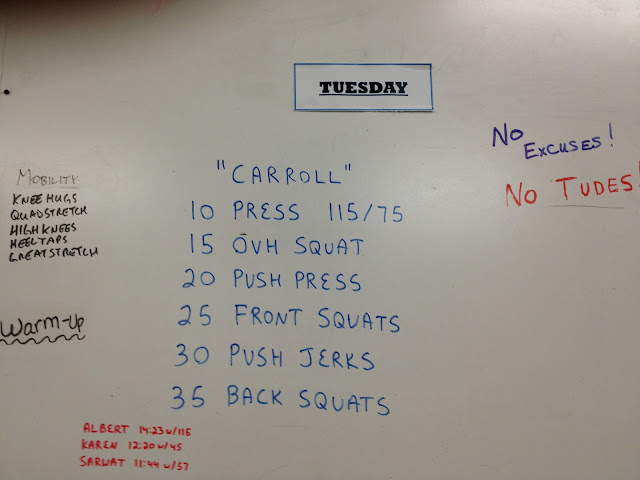 TUESDAY
No
Excuses!
No Tudes!
Mobility
Knee Hugs
Quad Stretch
High Knees
Heel Taps
Great Stretch
Warm-Up
"CARROLL"
10 PRESS 115/75
15 OVH SQUAT
20 PUSH PRESS
25 FRONT SQUATS
30 PUSH JERKS
35 BACK SQUATS
ALBERT 14:23 w/115
KAREN 12:20 w/45
SARWAT 11:44 w/57